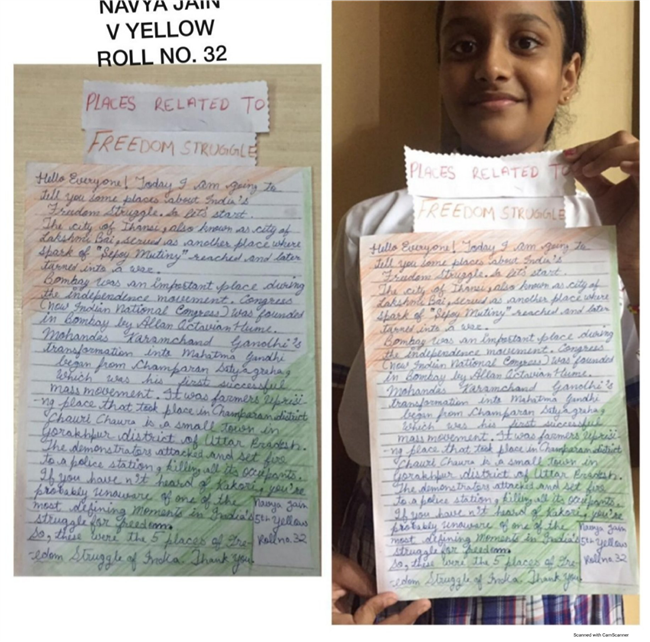 NAVYA JAIN
V YELLOW
ROLL NO. 32
PLACES RELATED TO
FREEDOM STRUGGLE
Hello Everyone! Today I am going to
tell you some places about India's
Freedom Struggle. So let's start.
The city of Thansi, also known as city of
Lakshmi Bai, served as another place where
spark of "Sepoy Mutiny" reached and later
turned into a war.
Bombay was an important place during
the Independence movement. Congress
(New Indian National Congress) was founded
in Bombay by Allan Octavian Hume.
Mohandas Karamchand Gandhi's
transformation into Mahatma Gandhi
began from Champaran Satyagraha,
Which was his first successful
mass movement. It was farmers uprisi-
ng place that took place in Champaran district
Chauri Chaura is a small town in
Gorakhpur district of Uttar Pradesh.
The demonstrators attacked and set fire
to a police station, killing all its occupants.
If you have n't heard of Kakori, you're
probably unaware of one of the
most defining Moments in India's
struggle for freedom.
So, these were the 5 places of Fre-
edom Struggle of India. Thank You
Navya Jain
5th Yellow
Roll no. 32
PLACES RELATED TO
FREEDOM STRUGGLE
Hello Everyone! Today I am going to
tell you some places about India's
Freedom Struggle. So let's start.
The city of Thansi, also known as city of
Lakshmi Bai, served as another place where
spark of "Sepoy Mutiny" reached and later
turned into a war.
Bombay was an important place during
the Independence movement. Congress
(New Indian National Congress) was founded
in Bombay by Allan Octavian Hume.
Mohandas Karamchand Gandhi's
transformation into Mahatma Gandhi
began from Champaran Satyagraha,
Which was his first successful
mass movement. It was farmers uprisi-
ng place that took place in Champaran district
Chauri Chaura is a small town in
Gorakhpur district of Uttar Pradesh.
The demonstrators attacked and set fire
to a police station, killing all its occupants.
If you have n't heard of Kakori, you're
probably unaware of one of the
most defining Moments in India's
struggle for freedom.
So, these were the 5 places of Fre-
edom Struggle of India. Thank You
Navya Jain
5th Yellow
Roll no. 32
Scanned with CamScanner